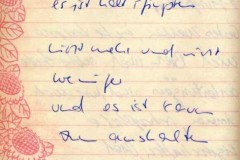 es ist halt
nicht mehr und nicht
weniger
und es ist kaum
zum aushalten